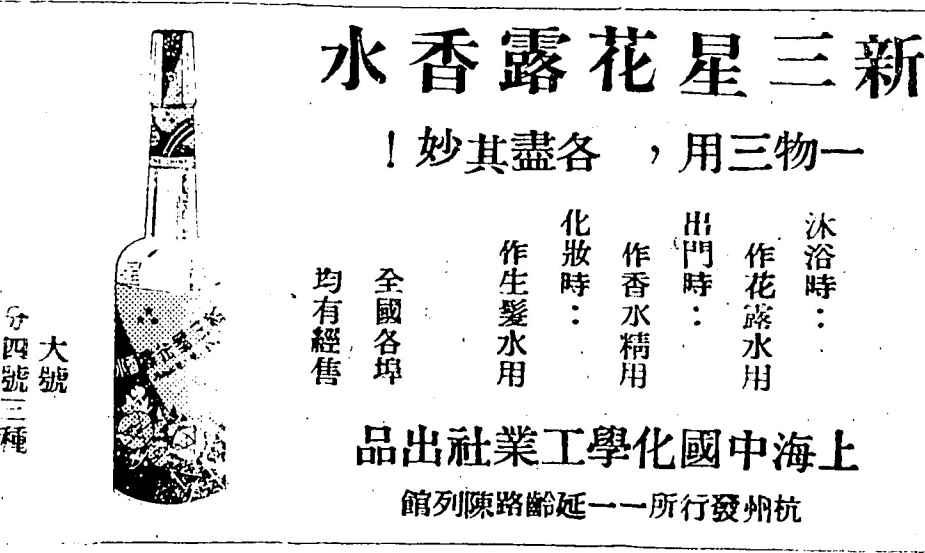 新三星花露香水
一物三用，各盡其妙！
沐浴時：
作花露水用
出門時：
作香水精用
化妝時：
作生髮水用
全國各埠
均有經售
大號
分四號三種
上海中國化學工業社出品
杭州發行所——延齡路陳列館